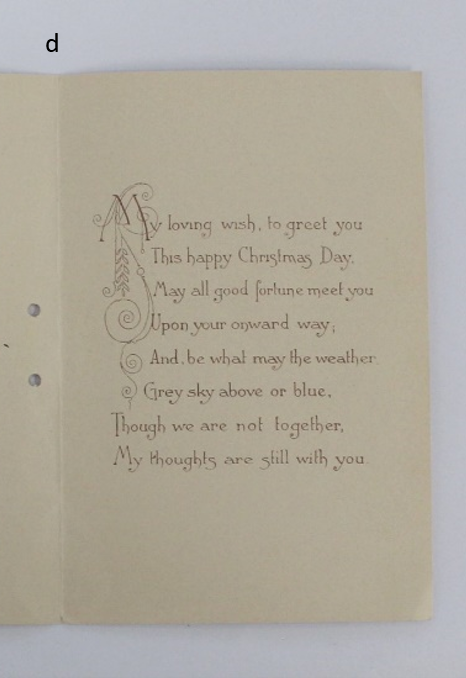 d
My loving wish, to greet you
This happy Christmas Day,
May all good fortune meet you
Upon your onward way;
And, be what may the weather
Grey sky above or blue,
Though we are not together,
My thoughts are still with you.